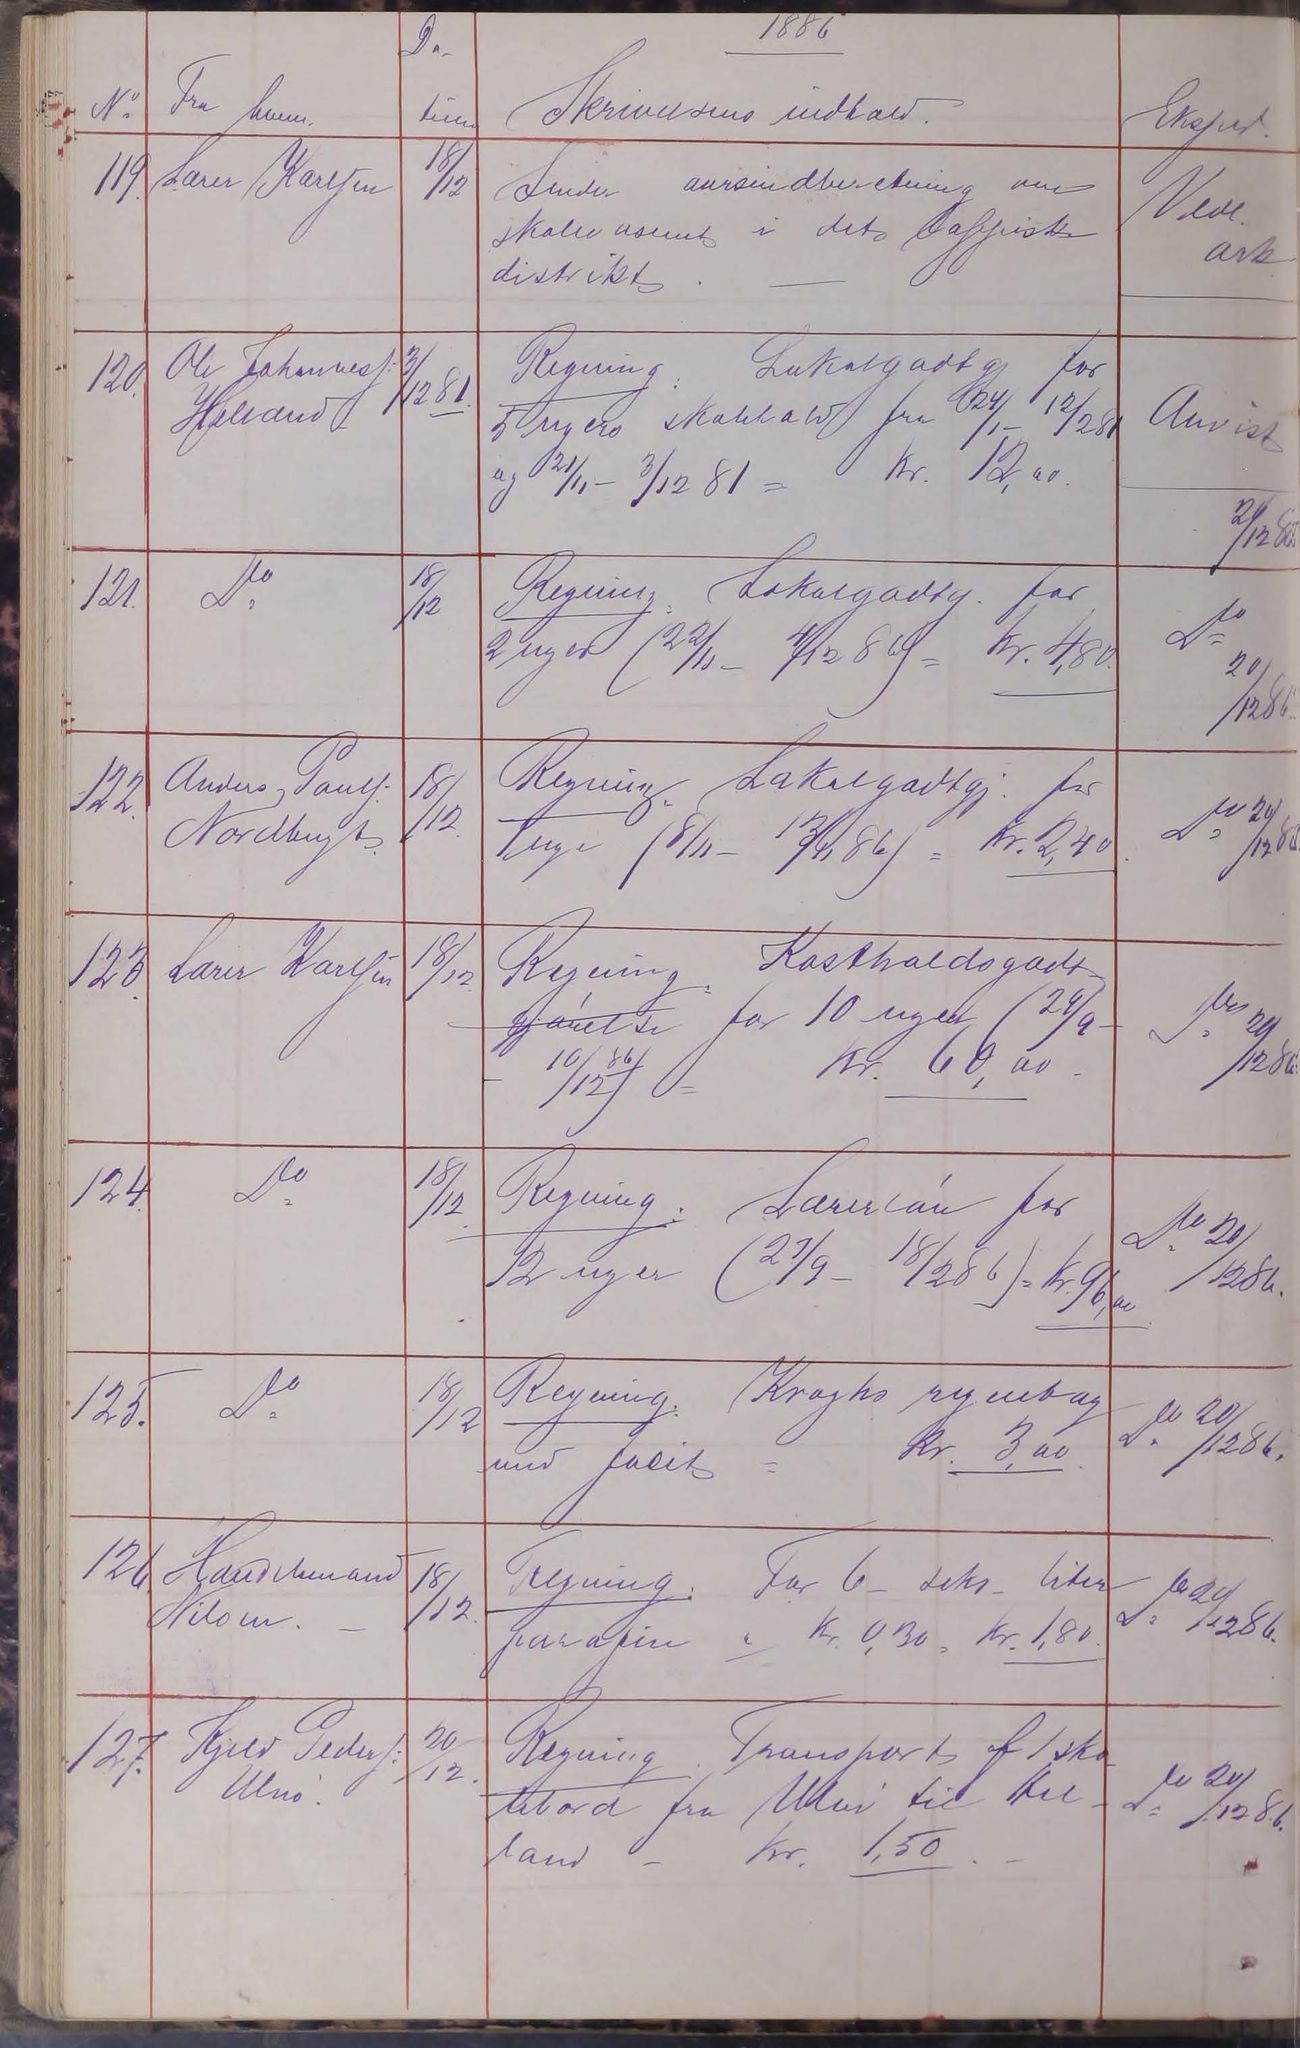 1886
No. Fra hvem. Da- tum Skrivelsens indhold. Eksped.
119. Lærer Karlsen 18/12 Sender aarsindberetning om
skolevæsenet i det lappiske
distrikt. —
Vedl.
ark.
120. Ole Johannes: 3/12 81. Regning. Lokalgodtg for
Helland 5 ugers skolehold fra 24/1 - 12/2 81
og 21/11 - 3/12 81 = Kr. 12,00.
Anvist
20/12 86.
121. Do 18/12 Regning. Lokalgodtg. for
2 uger (22/11 - 4/12 86) = Kr. 4,80.
Do
20/12 86.
122. Anders Pauls: 18/12. Regning. Lokalgodtgj. for
Nordbugt. 1 uge (8/11 - 13/11 86) = Kr. 2,40.
Do 20/12 86
123. Lærer Karlsen 18/12. Regning. Kostholdsgodt-
gjørelse for 10 uger (29/9 -
- 10/12 86) = Kr. 60,00.
Do 20/12 86.
124. Do 18/12. Regning. Lærerløn for
12 uger (27/9 - 18/12 86) = Kr. 96,00.
Do 20/12 86.
125. Do 18/12 Regning. Kroghs regnebog
med facit = Kr. 3,00.
Do 20/12 86.
126 Handelsmand 18/12. Regning. For 6 - seks - liter
Nilsen. — parafin a Kr. 0,30 = Kr. 1,80.
Do 20/12 86.
127. Kjeld Peders: 20/12. Regning. Transport af 1 sko-
Ulnø. lebord fra Ulnø til Hel-
land - Kr. 1,50. -
Do 20/12 86.